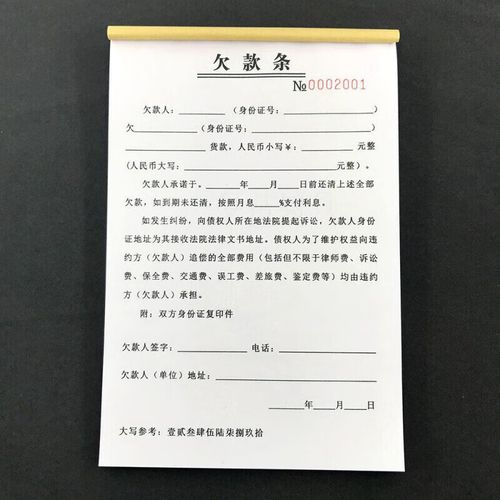 欠款条
№0002001
欠款人：________（身份证号：______________）
欠__________（身份证号：________________）
____________货款，人民币小写￥：________元整
(人民币大写：________________________元整）。
欠款人承诺于。______年____月____日前还清上述全部
欠款，如到期未还清，按照月息____%支付利息。
如发生纠纷，向债权人所在地法院提起诉讼，欠款人身份
证地址为其接收法院法律文书地址。债权人为了维护权益向违
约方（欠款人）追偿的全部费用（包括但不限于律师费、诉讼
费、保全费、交通费、误工费、差旅费、鉴定费等）均由违约
方（欠款人）承担。
附：双方身份证复印件
欠款人签字：____________ 电话：______________
欠款人（单位）地址：________________________
______年____月____日
大写参考：壹贰叁肆伍陆柒捌玖拾